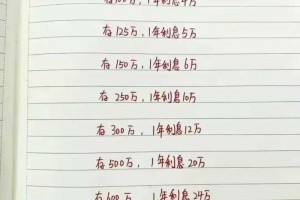 存100万，1年利息4万
存125万，1年利息5万
存150万，1年利息6万
存250万，1年利息10万
存300万，1年利息12万
存500万，1年利息20万
存600万，1年利息24万